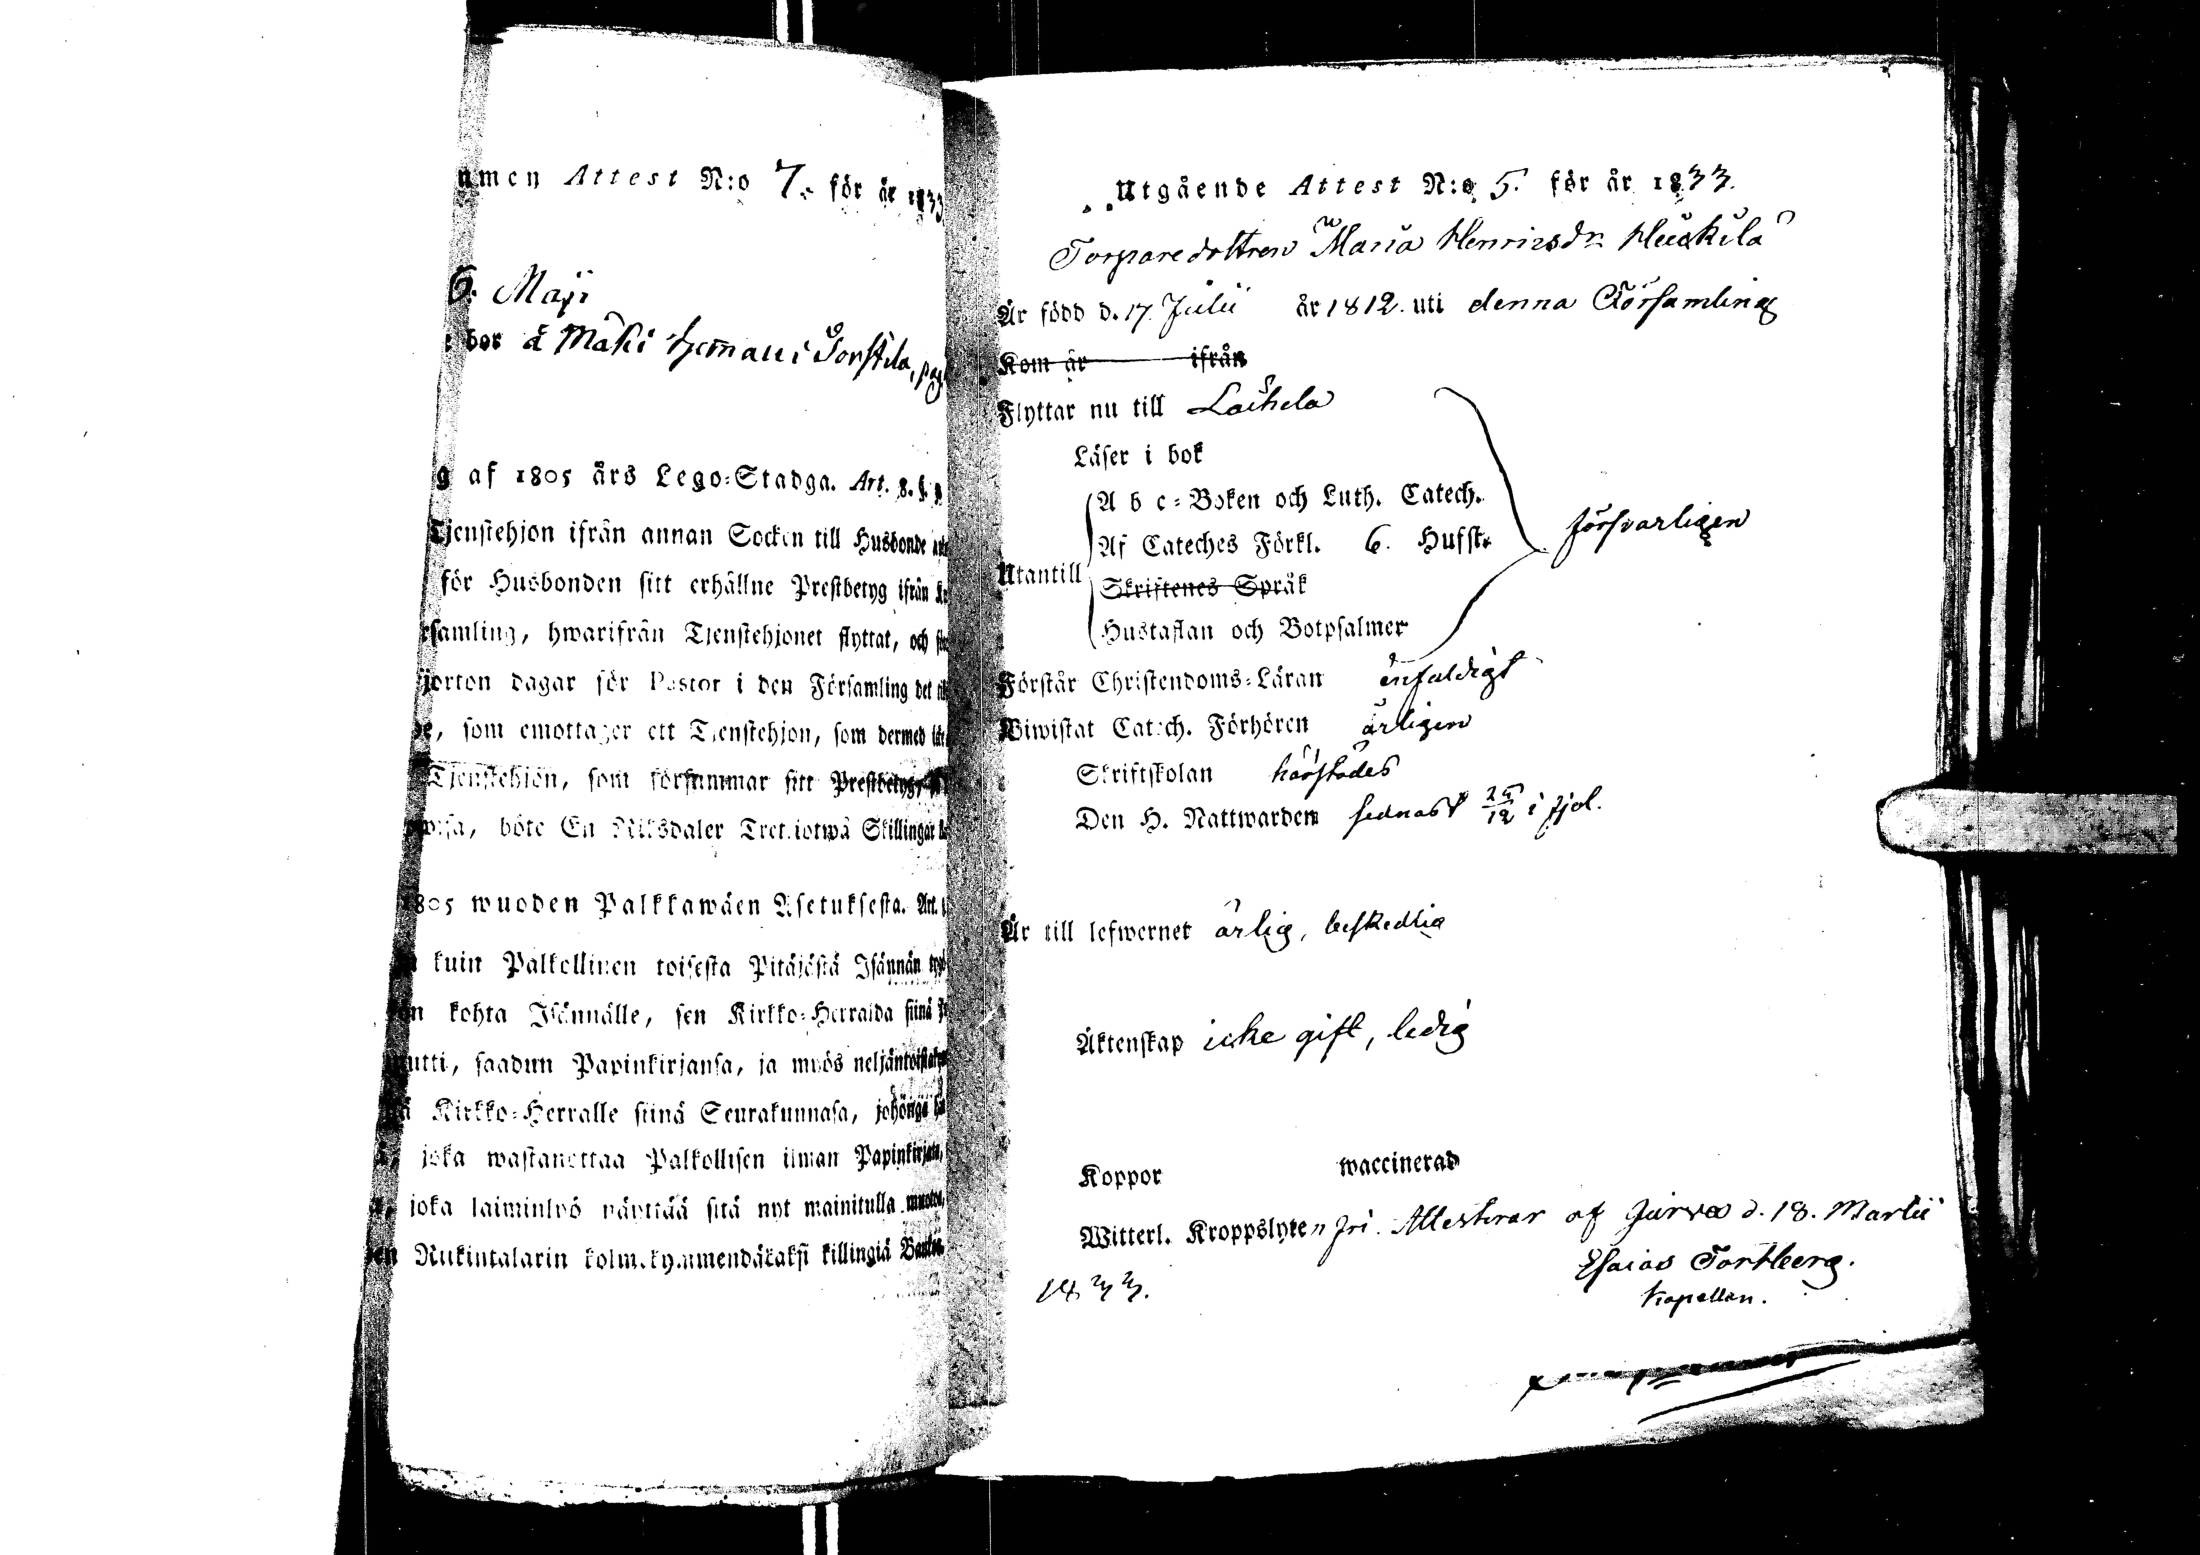 men Attest N:o 7. för år 1833
6. Maji
bor å Mäki heman i Jonkila, pag.
g af 1805 års Lego-Stadga. Art. 8. §.
Tjenstehjon ifrån annan Socken till Husbonde
för Husbonden sitt erhållne Prestbetyg ifrån
samling, hwarifrån Tjenstehjonet flyttat, och
fjorton dagar för Pastor i den Församling det
de, som emottager ett Tjenstehjon, som dermed
Tjenstehjon, som försummar sitt Prestbetyg,
wisa, böte En Riksdaler Trettiotwå Skillingar
1805 wuoden Palkkawäen Asetuksesta. Art.
kuin Palkollinen toisesta Pitäjästä Isännän
kohta Isännälle, sen Kirkko-Herralda siinä
utti, saadun Papinkirjansa, ja myös neljäntoista
Kirkko-Herralle siinä Seurakunnasa, johonga
joka wastanottaa Palkollisen ilman Papinkirjata,
joka laiminlyö näyttää sitä nyt mainitulla muotoa,
en Rikintalarin kolmekymmendäkaksi killingiä Banko.
Utgående Attest N:o 5. för år 1833.
Torparedottren Maria Henricsdr Heikilä
Är född d. 17. Julii år 1812. uti denna Församling
Kom år ifrån
Flyttar nu till Laihela
Läser i bok
A b c-Boken och Luth. Catech.
Af Cateches Förkl. 6. Hufst.
försvarligen
Utantill
Skriftenes Språk
Hustaflan och Botpsalmer
Förstår Christendoms-Läran enfaldigt
Biwistat Catech. Förhören årligen
Skriftskolan härstädes
Den H. Nattwarden sednast 25/12 i fjol.
Är till lefwernet ärlig, beskedlig
Äktenskap icke gift, ledig
Koppor waccinerad
Witterl. Kroppslyten fri. Attesterar af Jurva d. 18. Martii
1833.
Esaias Fortberg.
Kapellan.